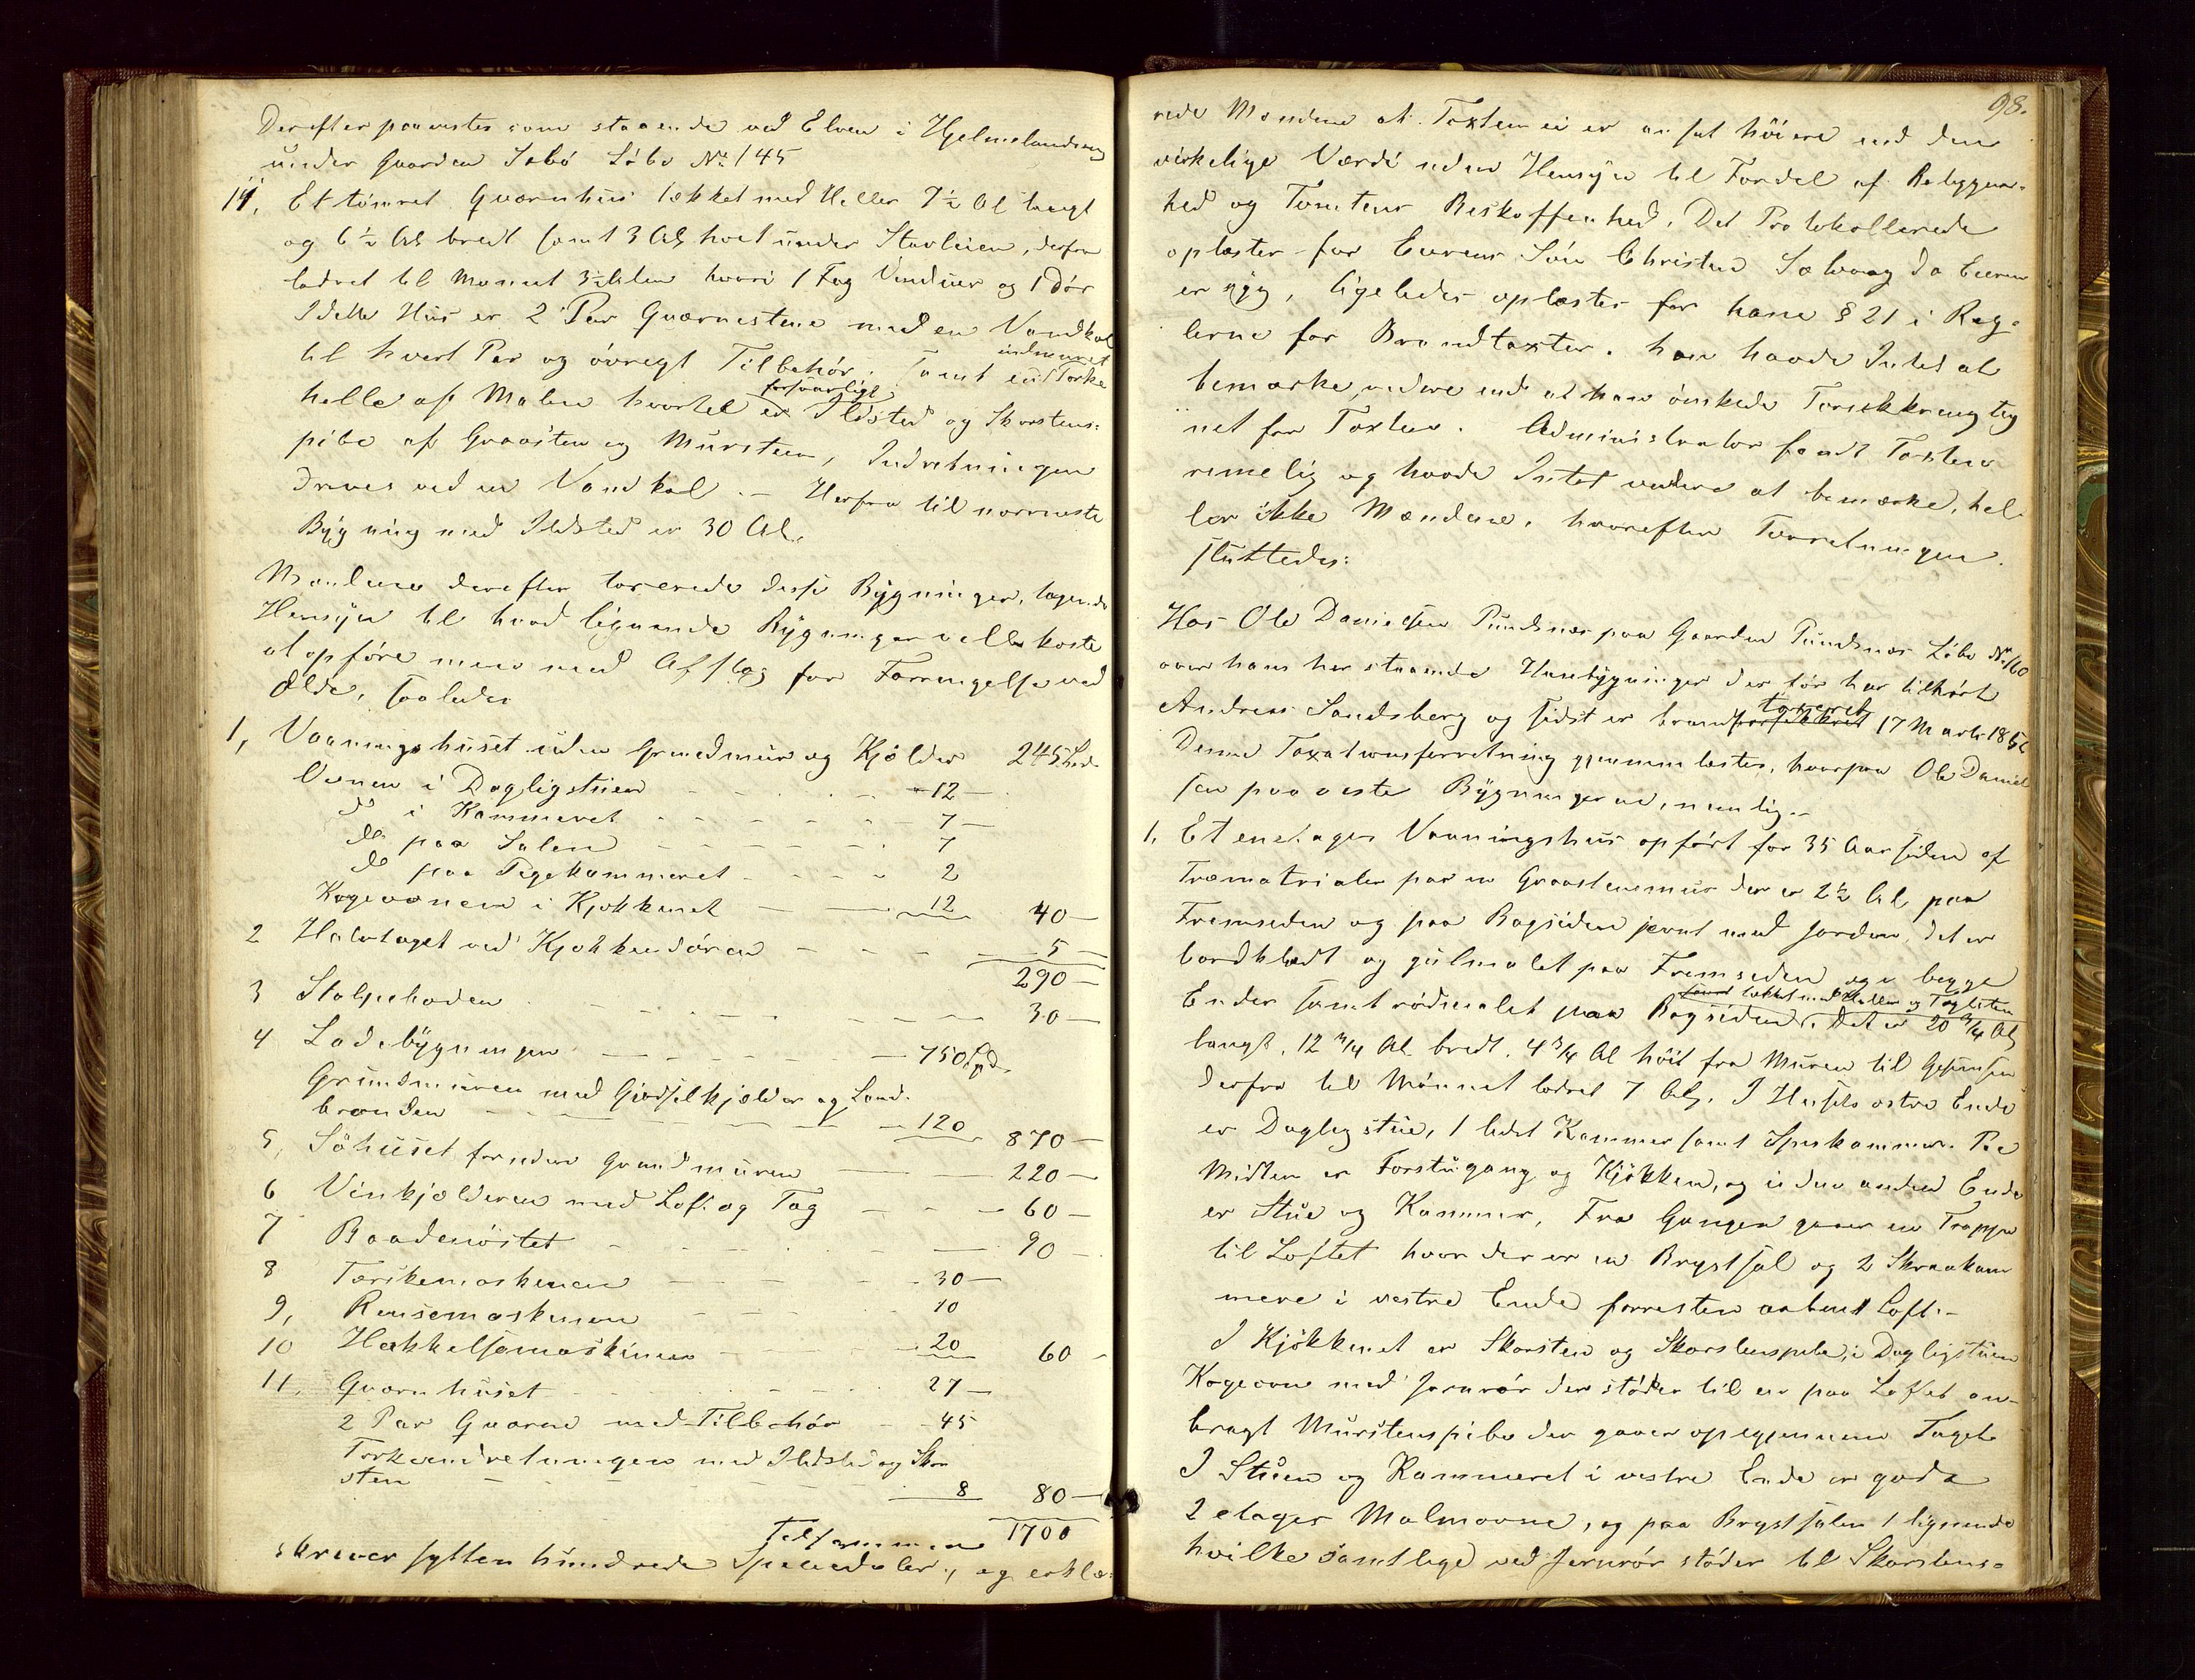 Derefter paavistes som staaende ved Elven i Hjelmelandsvaag
under Gaarden Sæbö Löbe No 145
11, Et tömret Qværnhuus tækket med Heller 7½ Al langt
og 6½ Al bredt samt 3 Al höit under Stavleien, derfra
lodret til Mönnet 3½ Alen hvori 1 Fag Vinduer og 1 Dör
I dette Huus er 2 Par Qværnestene med en Vandkal
til hvert Par og övrigt Tilbehör. Samt en indmuret Törke
helle af Malm hvortil er forsvarligt Ildsted og Skorstens-
pibe af Graasten og Mursteen, Indretningen
drives ved en Vandkal. - Herfra til nærmeste
Bygning med Ildsted er 30 Al.
Mændene derefter taxerede disse Bygninger, tagende
Hensyn til hvad lignende Bygninger ville koste
at opföre men med Afslag for Forringelse ved
Ælde, saaledes
1, Vaaningshuset uden Grundmuur og Kjelder 245 Spd.
Ovnen i Dagligstuen - 12 -
do i Kammeret - 7 -
do paa Salen - 7
do paa Pigekammeret - 2
Kogeovnen i Kjökkenet - 12 40 -
2 Halvtaget ved Kjökkendören - 5 -
290 -
3 Stolpeboden - 30 -
4 Ladebygningen - 750 Spd.
Grundmuren med Gjödselkjælder og Land-
brönden - 120 870 -
5, Söhuset foruden Grundmuren - 220 -
6 Vinkjælderen med Loft og Tag - 60 -
7 Baadenöstet - 90 -
8 Tærskemaskinen - 30 -
9, Rensemaskinen 10
10 Hakkelsemaskinen - 20 60 -
11, Qværnhuset - 27 -
2 Par Qværne med Tilbehör - 45
Törkeindretningen med Ildsted og Skor
sten - 8 80 -
Tilsammen 1700
skriver sytten hundrede Speciedaler, og erklæ-
98.
rede Mændene at Taxten ei er ansat höiere end den
virkelige Værdi uden Hensyn til Fordel af Beliggen-
hed og Tomtens Beskaffenhed. Det Protokollerede
oplæstes for Eierens Sön Christen da Eieren
er syg, ligeledes oplæstes for ham § 21 i Reg-
lerne for Brandtaxter. han havde Intet at
bemærke videre end at han önskede Forsikkring teg
net for Taxten. Administrator fandt Taxten
rimelig og havde Intet videre at bemærke, hel-
ler ikke Mændene, hvorefter Forretningen
sluttedes:
Hos Ole Danielsen Pundsnæs paa Gaarden Pundsnæs Löbe No 160
over hans her staaende Huusbygninger der för har tilhört
Andreas Sandsberg og sidst er brandforsikkret taxeret 17 Marts 1852
Denne Taxationsforretning gjennemlæstes, hvorpaa Ole Daniel
sen paaviste Bygningerne, nemlig. -
1. Et enetages Vaaningshuus opfört for 35 Aar siden af
Træmatrialer paa en Graasteensmuur der er 2½ Al paa
Fremsiden og paa Bagsiden jevnt med Jorden, det er
bordklædt og guulmalet paa Fremsiden og i begge
Ender samt rödmalet paa Bagsiden samt tækket med Heller og Tagsten. Det er 20 3/4 Al
langt, 12 3/4 Al bredt, 4 3/4 Al höit fra Muren til Gesimsen
derfra til Mönnet lodret 7 Al. I Husets östre Ende
er Dagligstue, 1 lidet Kammer samt Spiskammer. Paa
Midten er Forstugang og Kjökken, og i den anden Ende
er Stue og Kammer, Fra Gangen gaaer en Trappe
til Loftet hvor der er en Brystsal og 2 Skraakam
mere i vestre Ende forresten aabent Loft. -
I Kjökkenet er Skorsten og Skorstenspibe, i Dagligstuen
Kogeovn med Jernrör der stöder til en paa Loftet an-
bragt Murstenspibe der gaaer op igjennem Taget.
I Stuen og Kammeret i vestre Ende er gode
2 etages Malmovne, og paa Brystsalen 1 lignende
hvilke samtlige ved Jernrör stöder til Skorstens-